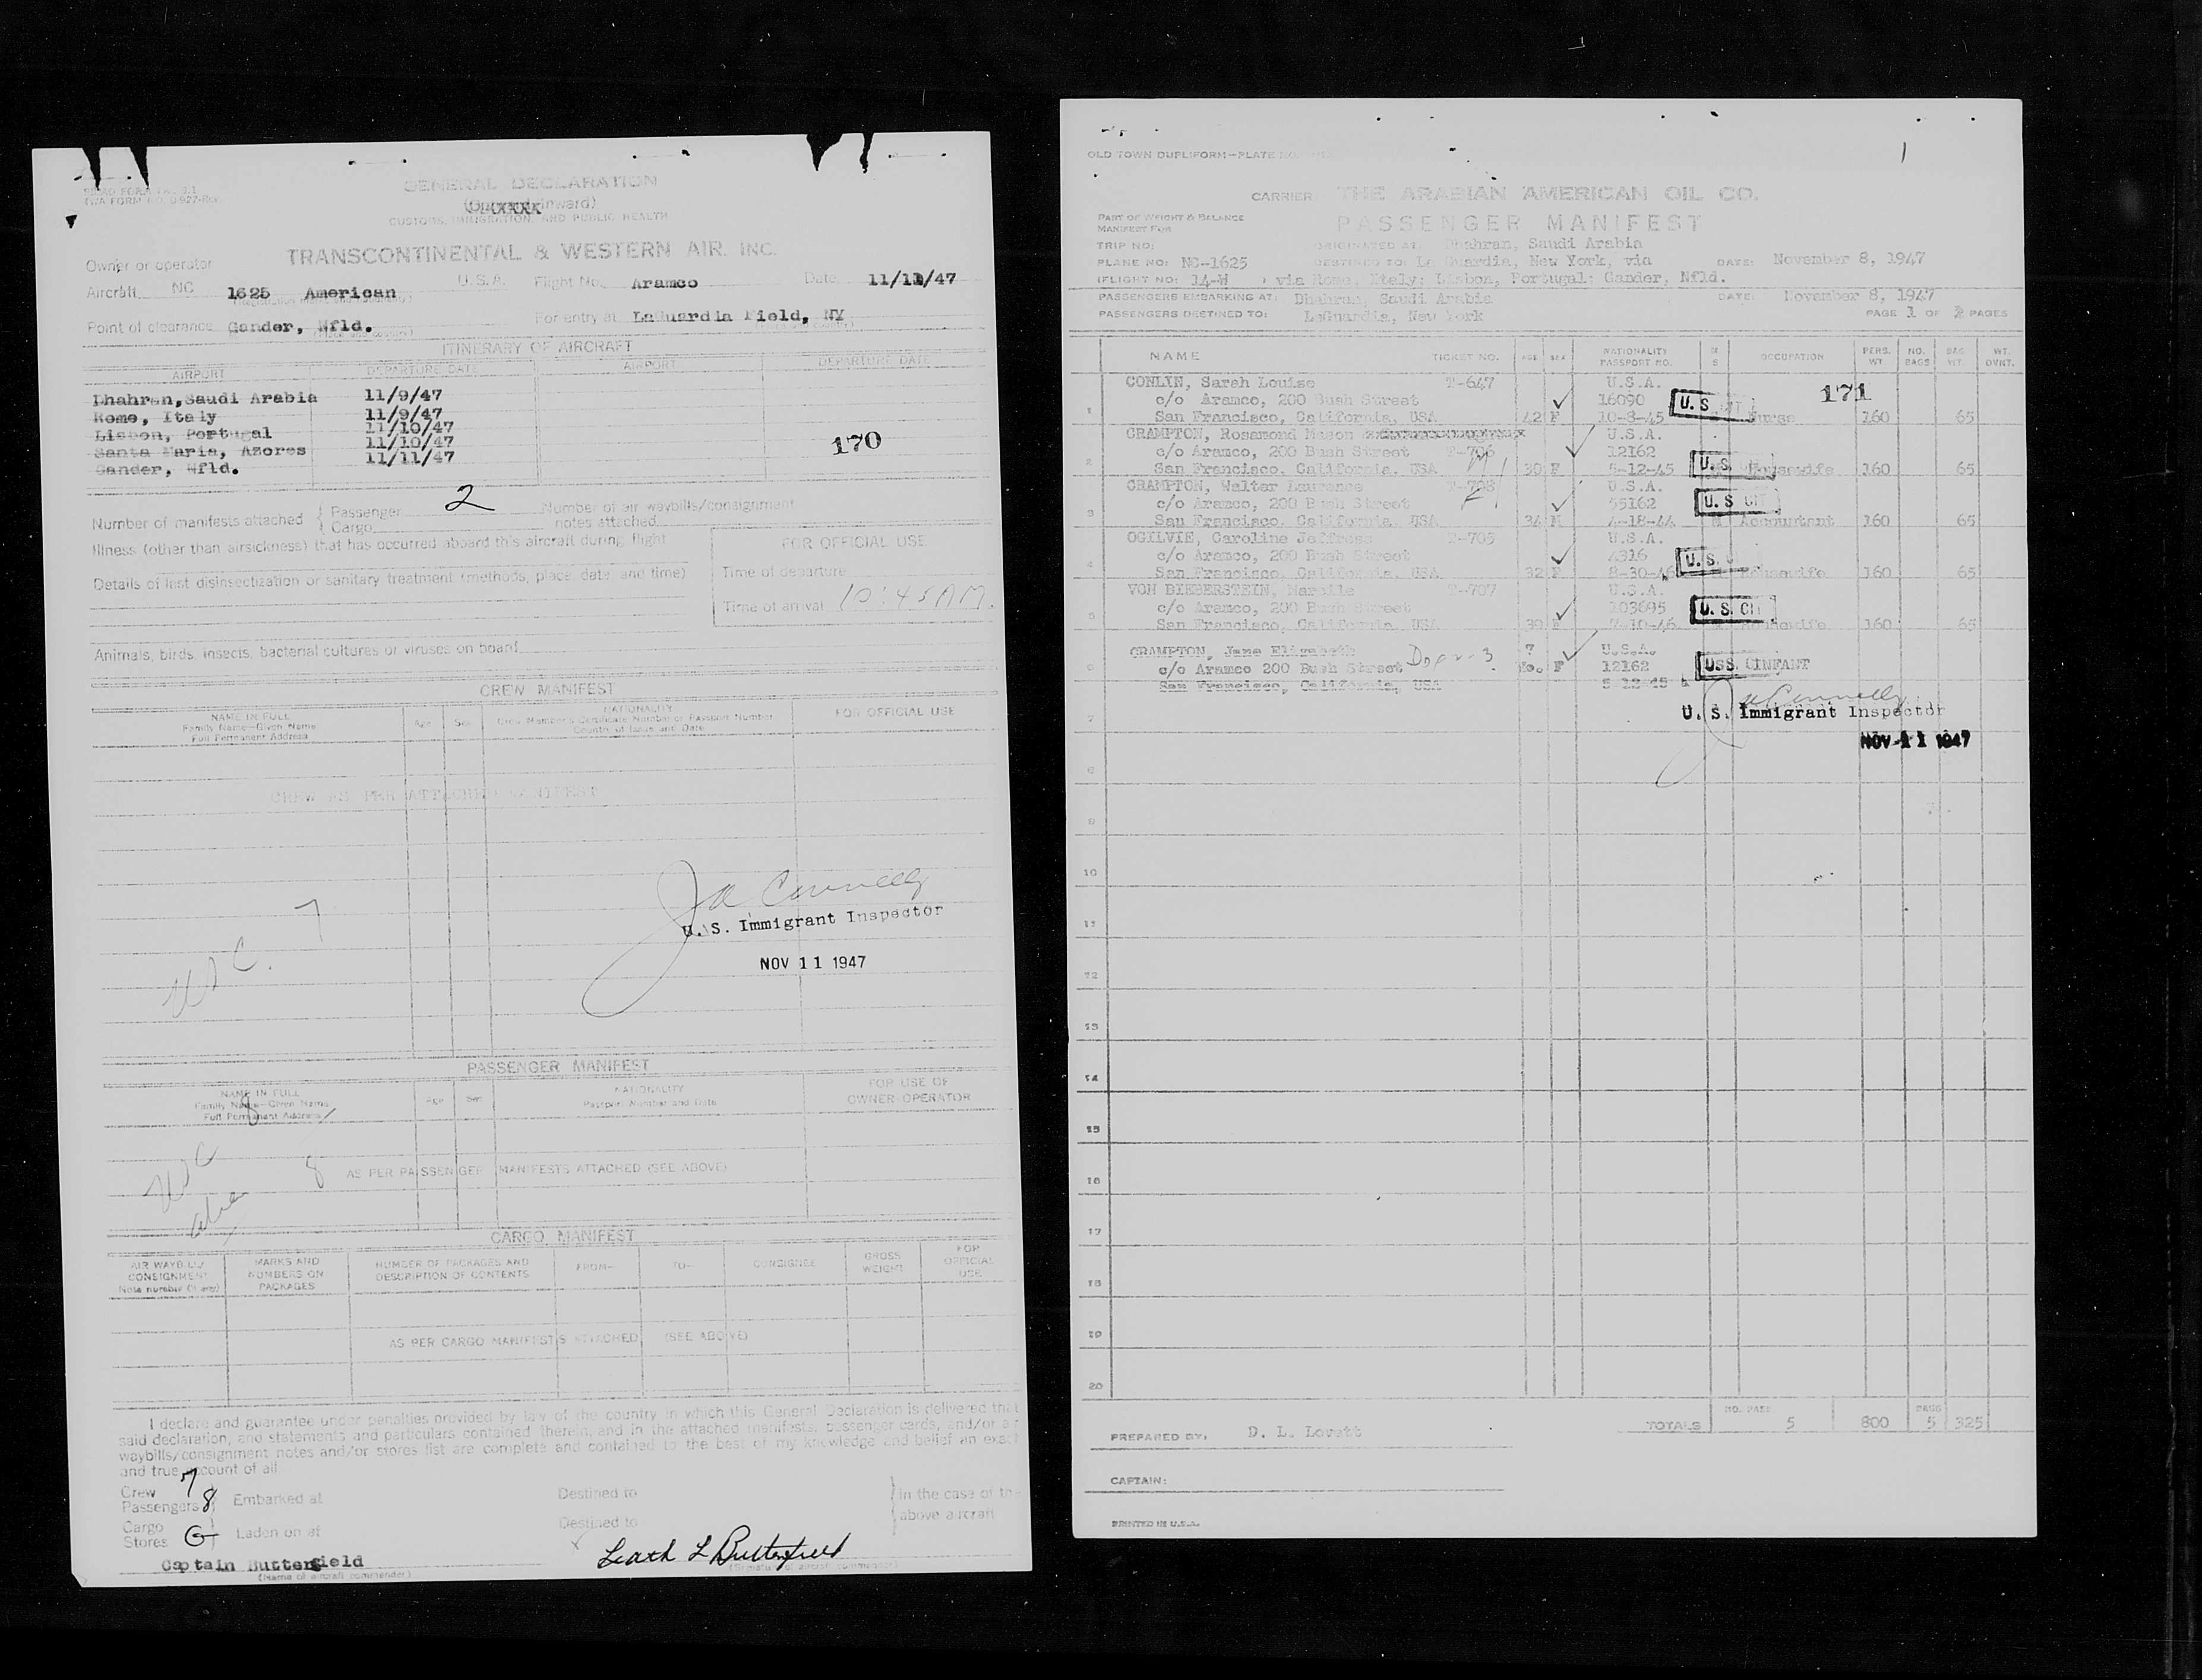 GENERAL DECLARATION
CUSTOMS, IMMIGRATION, AND PUBLIC HEALTH
TRANSCONTINENTAL & WESTERN AIR. INC.
Owner or operator
Aircraft NC 1625 American U.S.A. Flight No. Aramco Date 11/11/47
Point of clearance Gander, Nfld. For entry at LaGuardia Field, NY
ITINERARY OF AIRCRAFT
AIRPORT DEPARTURE DATE AIRPORT DEPARTURE DATE
Dhahran,Saudi Arabia 11/9/47
Rome, Italy 11/9/47
Lisbon, Portugal 11/10/47
Santa Maria, Azores 11/10/47
Gander, Nfld. 11/11/47
170
Number of manifests attached Passenger 2 Cargo Number of air waybills/consignment notes attached
Illness (other than airsickness) that has occurred aboard this aircraft during flight
FOR OFFICIAL USE
Details of last disinsectization or sanitary treatment (methods, place, date, and time)
Time of departure
Time of arrival 10:45AM.
Animals, birds, insects, bacterial cultures or viruses on board
CREW MANIFEST
NAME IN FULL Age Sex NATIONALITY FOR OFFICIAL USE
Family Name—Given Name Crew Member's Certificate Number or Passport Number
Full Permanent Address Country of Issue and Date
CREW AS PER ATTACHED MANIFEST
7
U.S. Immigrant Inspector
NOV 11 1947
PASSENGER MANIFEST
NAME IN FULL Age Sex NATIONALITY FOR USE OF
Family Name—Given Name Passport Number and Date OWNER-OPERATOR
Full Permanent Address
8 AS PER PASSENGER MANIFESTS ATTACHED (SEE ABOVE)
CARGO MANIFEST
AIR WAYBILL/ CONSIGNMENT Note number (if any)
MARKS AND NUMBERS ON PACKAGES
NUMBER OF PACKAGES AND DESCRIPTION OF CONTENTS
FROM— TO— CONSIGNEE GROSS WEIGHT FOR OFFICIAL USE
AS PER CARGO MANIFESTS ATTACHED (SEE ABOVE)
I declare and guarantee under penalties provided by law of the country in which this General Declaration is delivered that
said declaration, and statements and particulars contained therein, and in the attached manifests, passenger cards, and/or air
waybills/consignment notes and/or stores list are complete and contained to the best of my knowledge and belief an exact
and true account of all
Crew 7
Passengers 8 Embarked at Destined to in the case of the
Cargo above aircraft
Stores Laden on at Destined to
Captain Butterfield
(Name of aircraft commander)
OLD TOWN DUPLIFORM—PLATE NO.
1
CARRIER THE ARABIAN AMERICAN OIL CO.
PART OF WEIGHT & BALANCE
MANIFEST FOR PASSENGER MANIFEST
TRIP NO: ORIGINATED AT Dhahran, Saudi Arabia
PLANE NO: NC-1625 DESTINED TO: La Guardia, New York, via DATE: November 8, 1947
(FLIGHT NO: 14-W ) via Rome, Italy; Lisbon, Portugal; Gander, Nfld.
PASSENGERS EMBARKING AT: Dhahran, Saudi Arabia DATE: November 8, 1947
PASSENGERS DESTINED TO: LaGuardia, New York PAGE 1 OF 2 PAGES
NAME TICKET NO. AGE SEX NATIONALITY PASSPORT NO. M S OCCUPATION PERS. WT. NO. BAGS BAG WT. WT. OVNT.
CONLYN, Sarah Louise T-647 U.S.A. 171
c/o Aramco, 200 Bush Street 16090 U.S.
1 San Francisco, California, USA 42 F 10-8-45 Nurse 160 65
CRAMPTON, Rosamond Mason U.S.A.
c/o Aramco, 200 Bush Street T-706 12162
2 San Francisco, California, USA 30 F 5-12-45 U.S. Housewife 160 65
CRAMPTON, Walter Laurence T-708 U.S.A.
c/o Aramco, 200 Bush Street 55162 U.S CIT
3 San Francisco, California, USA 34 M 4-18-44 M Accountant 160 65
OGILVIE, Caroline Jeffress T-705 U.S.A.
c/o Aramco, 200 Bush Street 4316 U.S.
4 San Francisco, California, USA 32 F 8-30-46 Housewife 160 65
VON BIEBERSTEIN, T-707 U.S.A.
c/o Aramco, 200 Bush Street 103695 U.S. CIT
5 San Francisco, California, USA 39 F 7-10-46 Housewife 160 65
CRAMPTON, Jane Elizabeth 7 U.S.A.
6 c/o Aramco 200 Bush Street Mo. F 12162 INFANT
San Francisco, California, USA 5-12-45
7 U. S. Immigrant Inspector
NOV 11 1947
8
9
10
11
12
13
14
15
16
17
18
19
20
TOTALS NO. PASS 5 800 BAGS 5 325
PREPARED BY: D. L. Lovett
CAPTAIN:
PRINTED IN U.S.A.